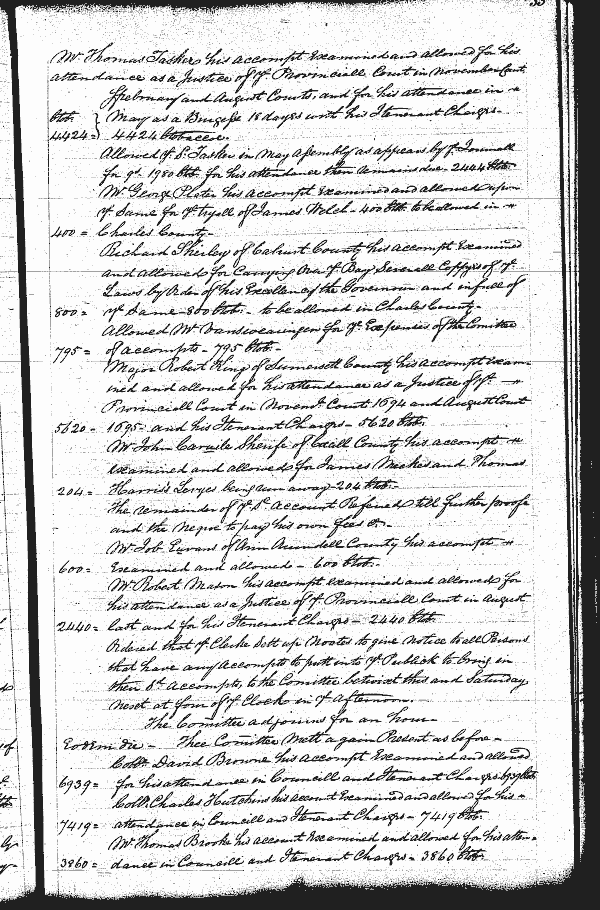 33
Mr Thomas Tasker his accompt Examined and allowed for his
attendance as a Justice of ye Provinciall Court in November Court
ffebruary and August Courts, and for his attendance in
tob: } May as a Burgesse 18 dayes with his Itenerant Charges
4424 = } 4424 tobaccoe.
Allowed Mr Tasker in May Assembly as appears by ye Journall
for gd. 1980 tob. for his attendance then remains due. 2444 tob.
Mr George Plater his accompt Examined and allowed upon
ye Same for ye tryall of James Welch - 400 tob. to be allowed in
400 = Charles County.
Richard Shirley of Calvert County his accompt Examined
and allowed for Carrying Over ye Bay Severall Coppyes of ye
Laws by Order of his Excellency the Governour and in full of
800 = ye Same - 800 tob. - to be allowed in Charles County.
Allowed Mr Vansweringen for ye Expenses of the Comittee
795 = of accompts - 795 tob. -
Major Robert King of Sumersett County his accompt exam-
ined and allowed for his attendance as a Justice of ye
Provinciall Court in Novemb. Court 1694 and August Court
5620 - 1695 - and his Itenerant Charges - 5620 tob.
Mr John Carvile Sherife of Cecill County his accompt
examined and allowed for James Meekes and Thomas
204 = Harris's Levyes being run away - 204 tob.
The remainder of ye sd. account Referred till further proofe
and the Negroe to pay his own fees &c. -
Mr Job Evans of Ann Arundell County his accompt
600 = Examined and allowed - 600 tob. -
Mr Robert Mason his accompt examined and allowed for
his attendance as a Justice of ye Provinciall Court in August
2440 = last and for his Itenerant Charges - 2440 tob.
Ordered that ye Clerke sett up Nootes to give notice to all Persons
that have any accompts to putt in to ye Publick to bring in
their sd. accompts, to the Comittee betwixt this and Saturday
next at four of ye Clock in ye afternoon.
The Comittee adjourns for an hour -
Eodem die - Thee Comittee Mett again Present as before -
Collo. David Browne his accompt Examined and allowed
6939 = for his attendance in Councill and Itenerant Charges 6939 tob.
Collo. Charles Hutchins his account Examined and allowed for his
7419 = attendance in Councill and Itenerant Charges - 7419 tob.
Mr Thomas Brooke his account examined and allowed for his atten-
3860 = dance in Councill and Itenerant Charges - 3860 tob.